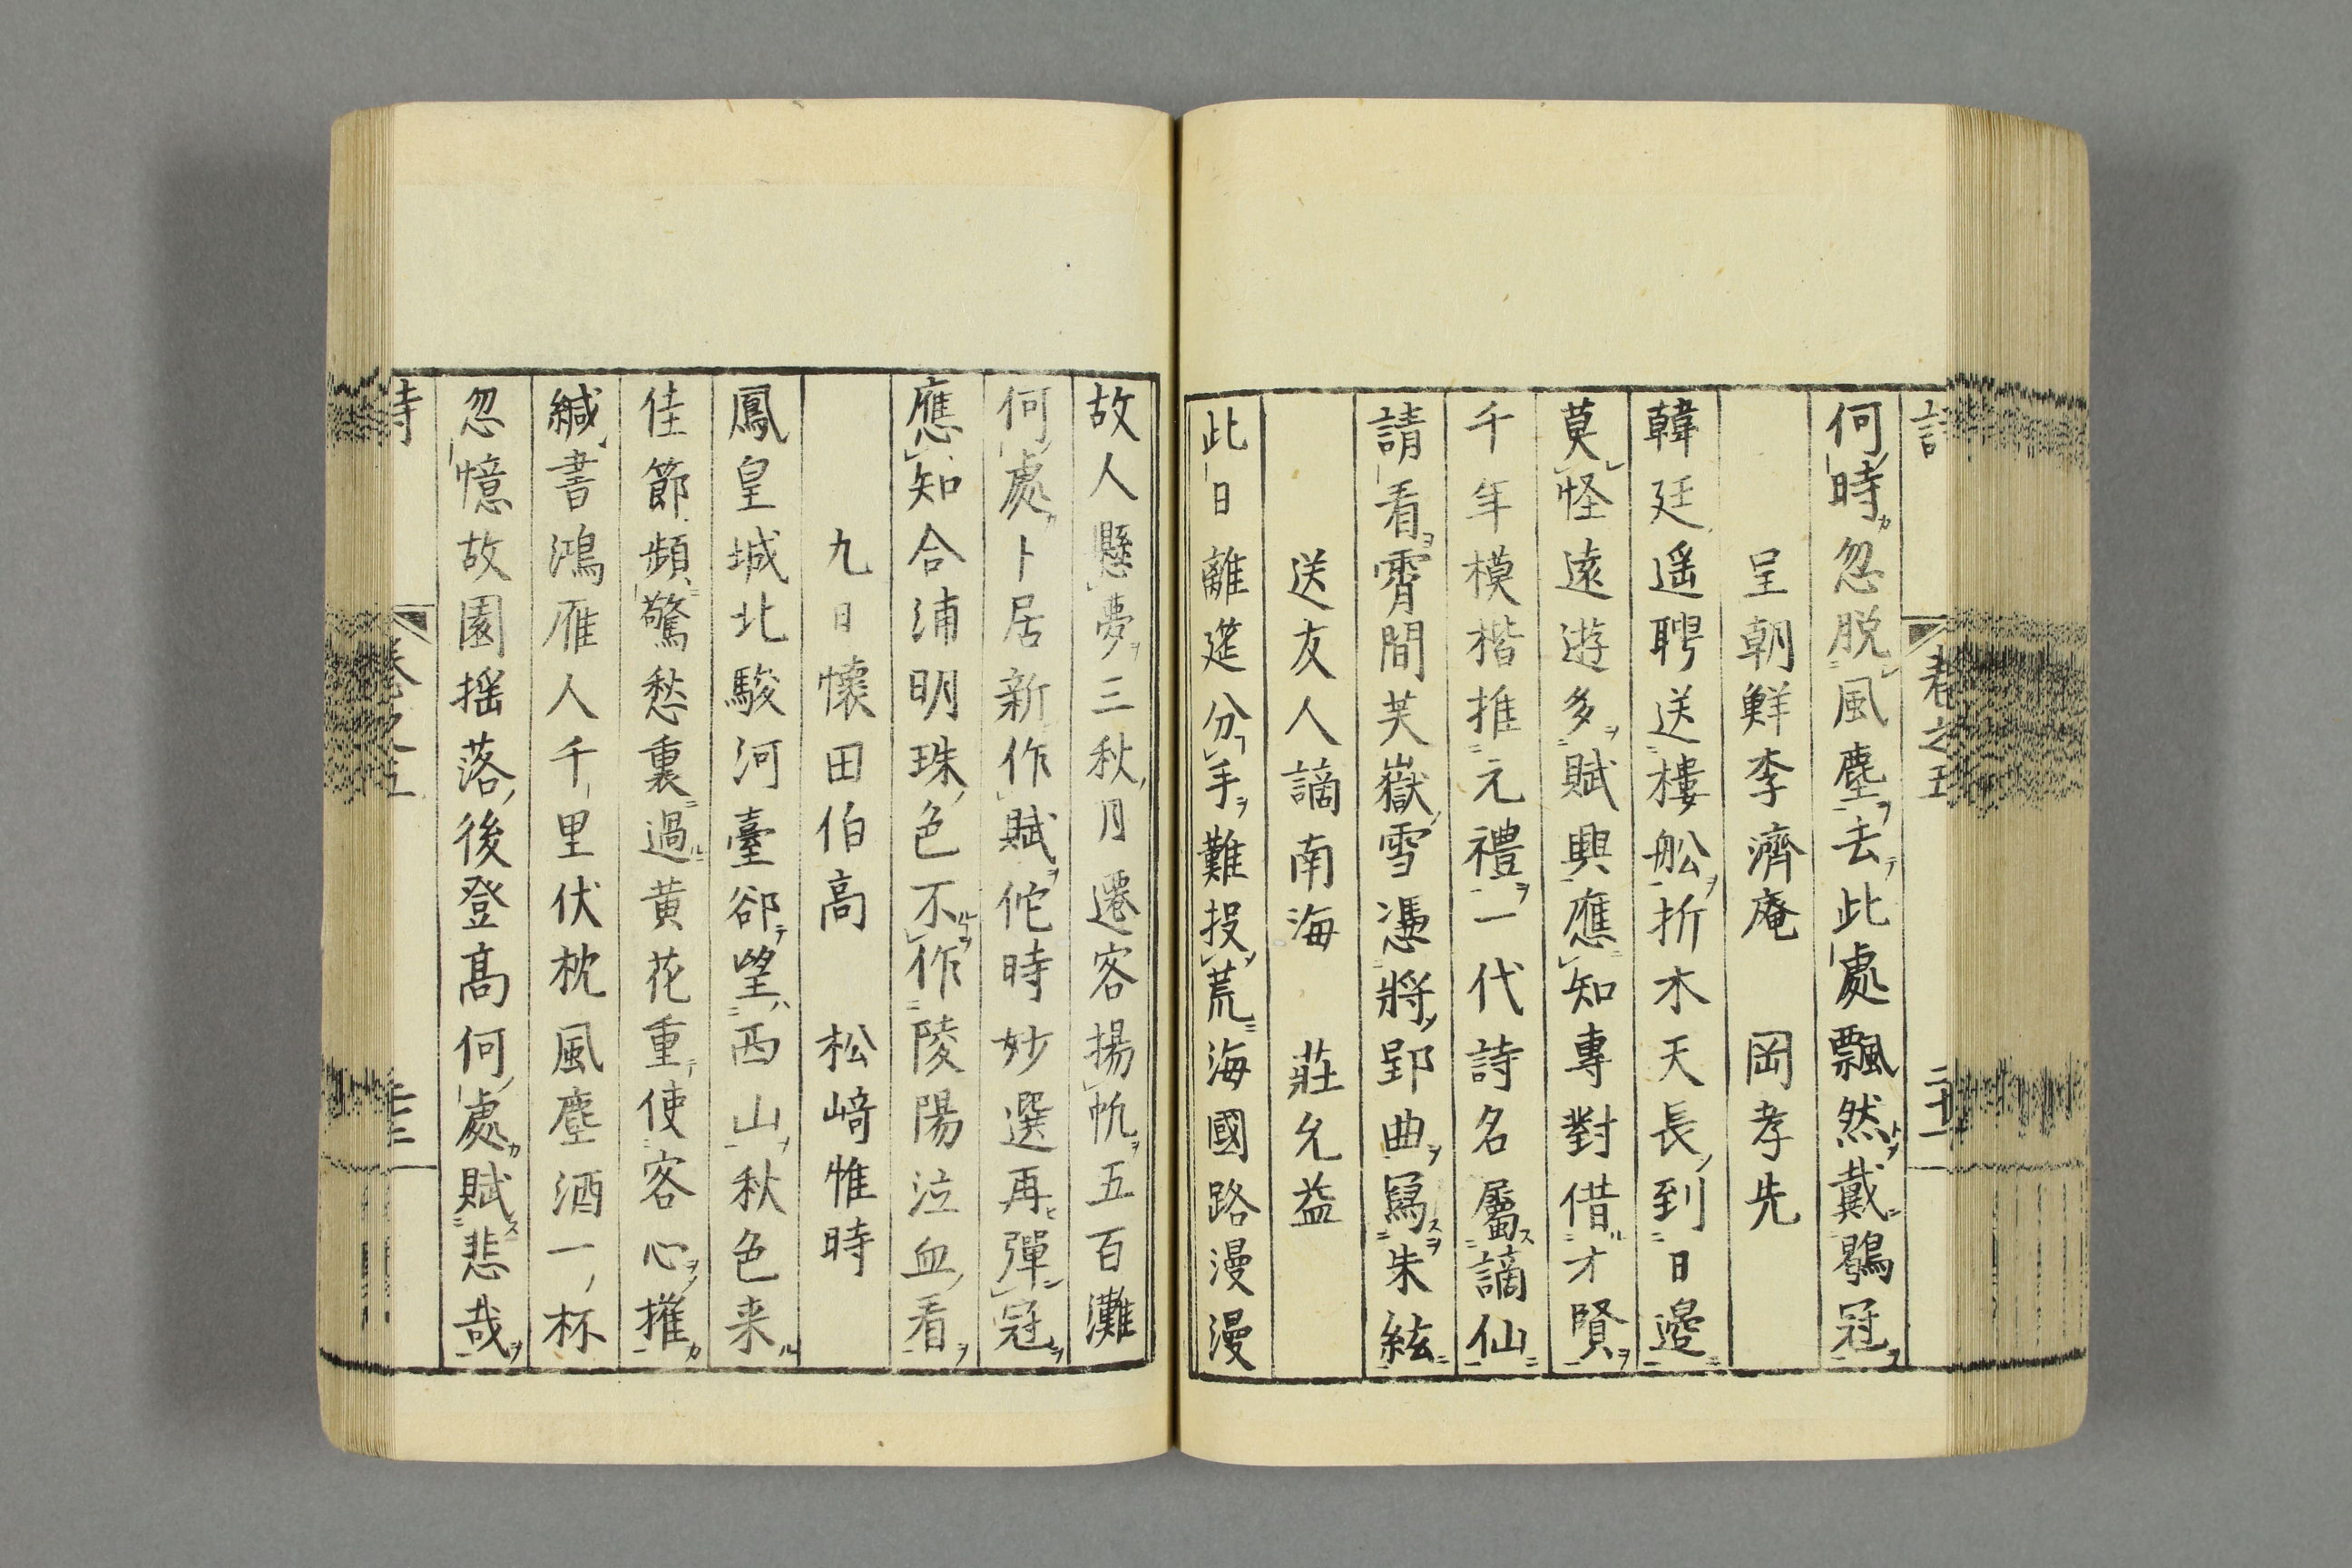 何時忽脱風塵去此處飄然戴鶡冠
呈朝鮮李濟庵　岡孝先
韓廷遥聘送樓舩折木天長到日邊
莫怪遠遊多賦興應知專對借才賢
千年模楷推元禮一代詩名屬謫仙
請看霄間芙嶽雪憑將郢曲寫朱絃
送友人謫南海　莊允益
此日離筵分手難投荒海國路漫漫
故人懸夢三秋月遷客揚帆五百灘
何處卜居新作賦佗時妙選再彈冠
應知合浦明珠色不作陵陽泣血看
九日懷田伯高　松﨑惟時
鳳皇城北駿河臺郤望西山秋色来
佳節頻驚愁裏過黄花重使客心摧
緘書鴻雁人千里伏枕風塵酒一杯
忽憶故園揺落後登髙何處賦悲哉